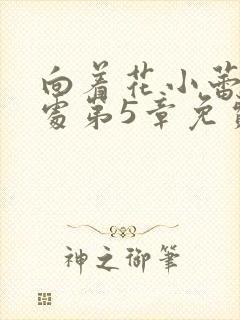 向着花小蕾
处第5章免费
神之御筆